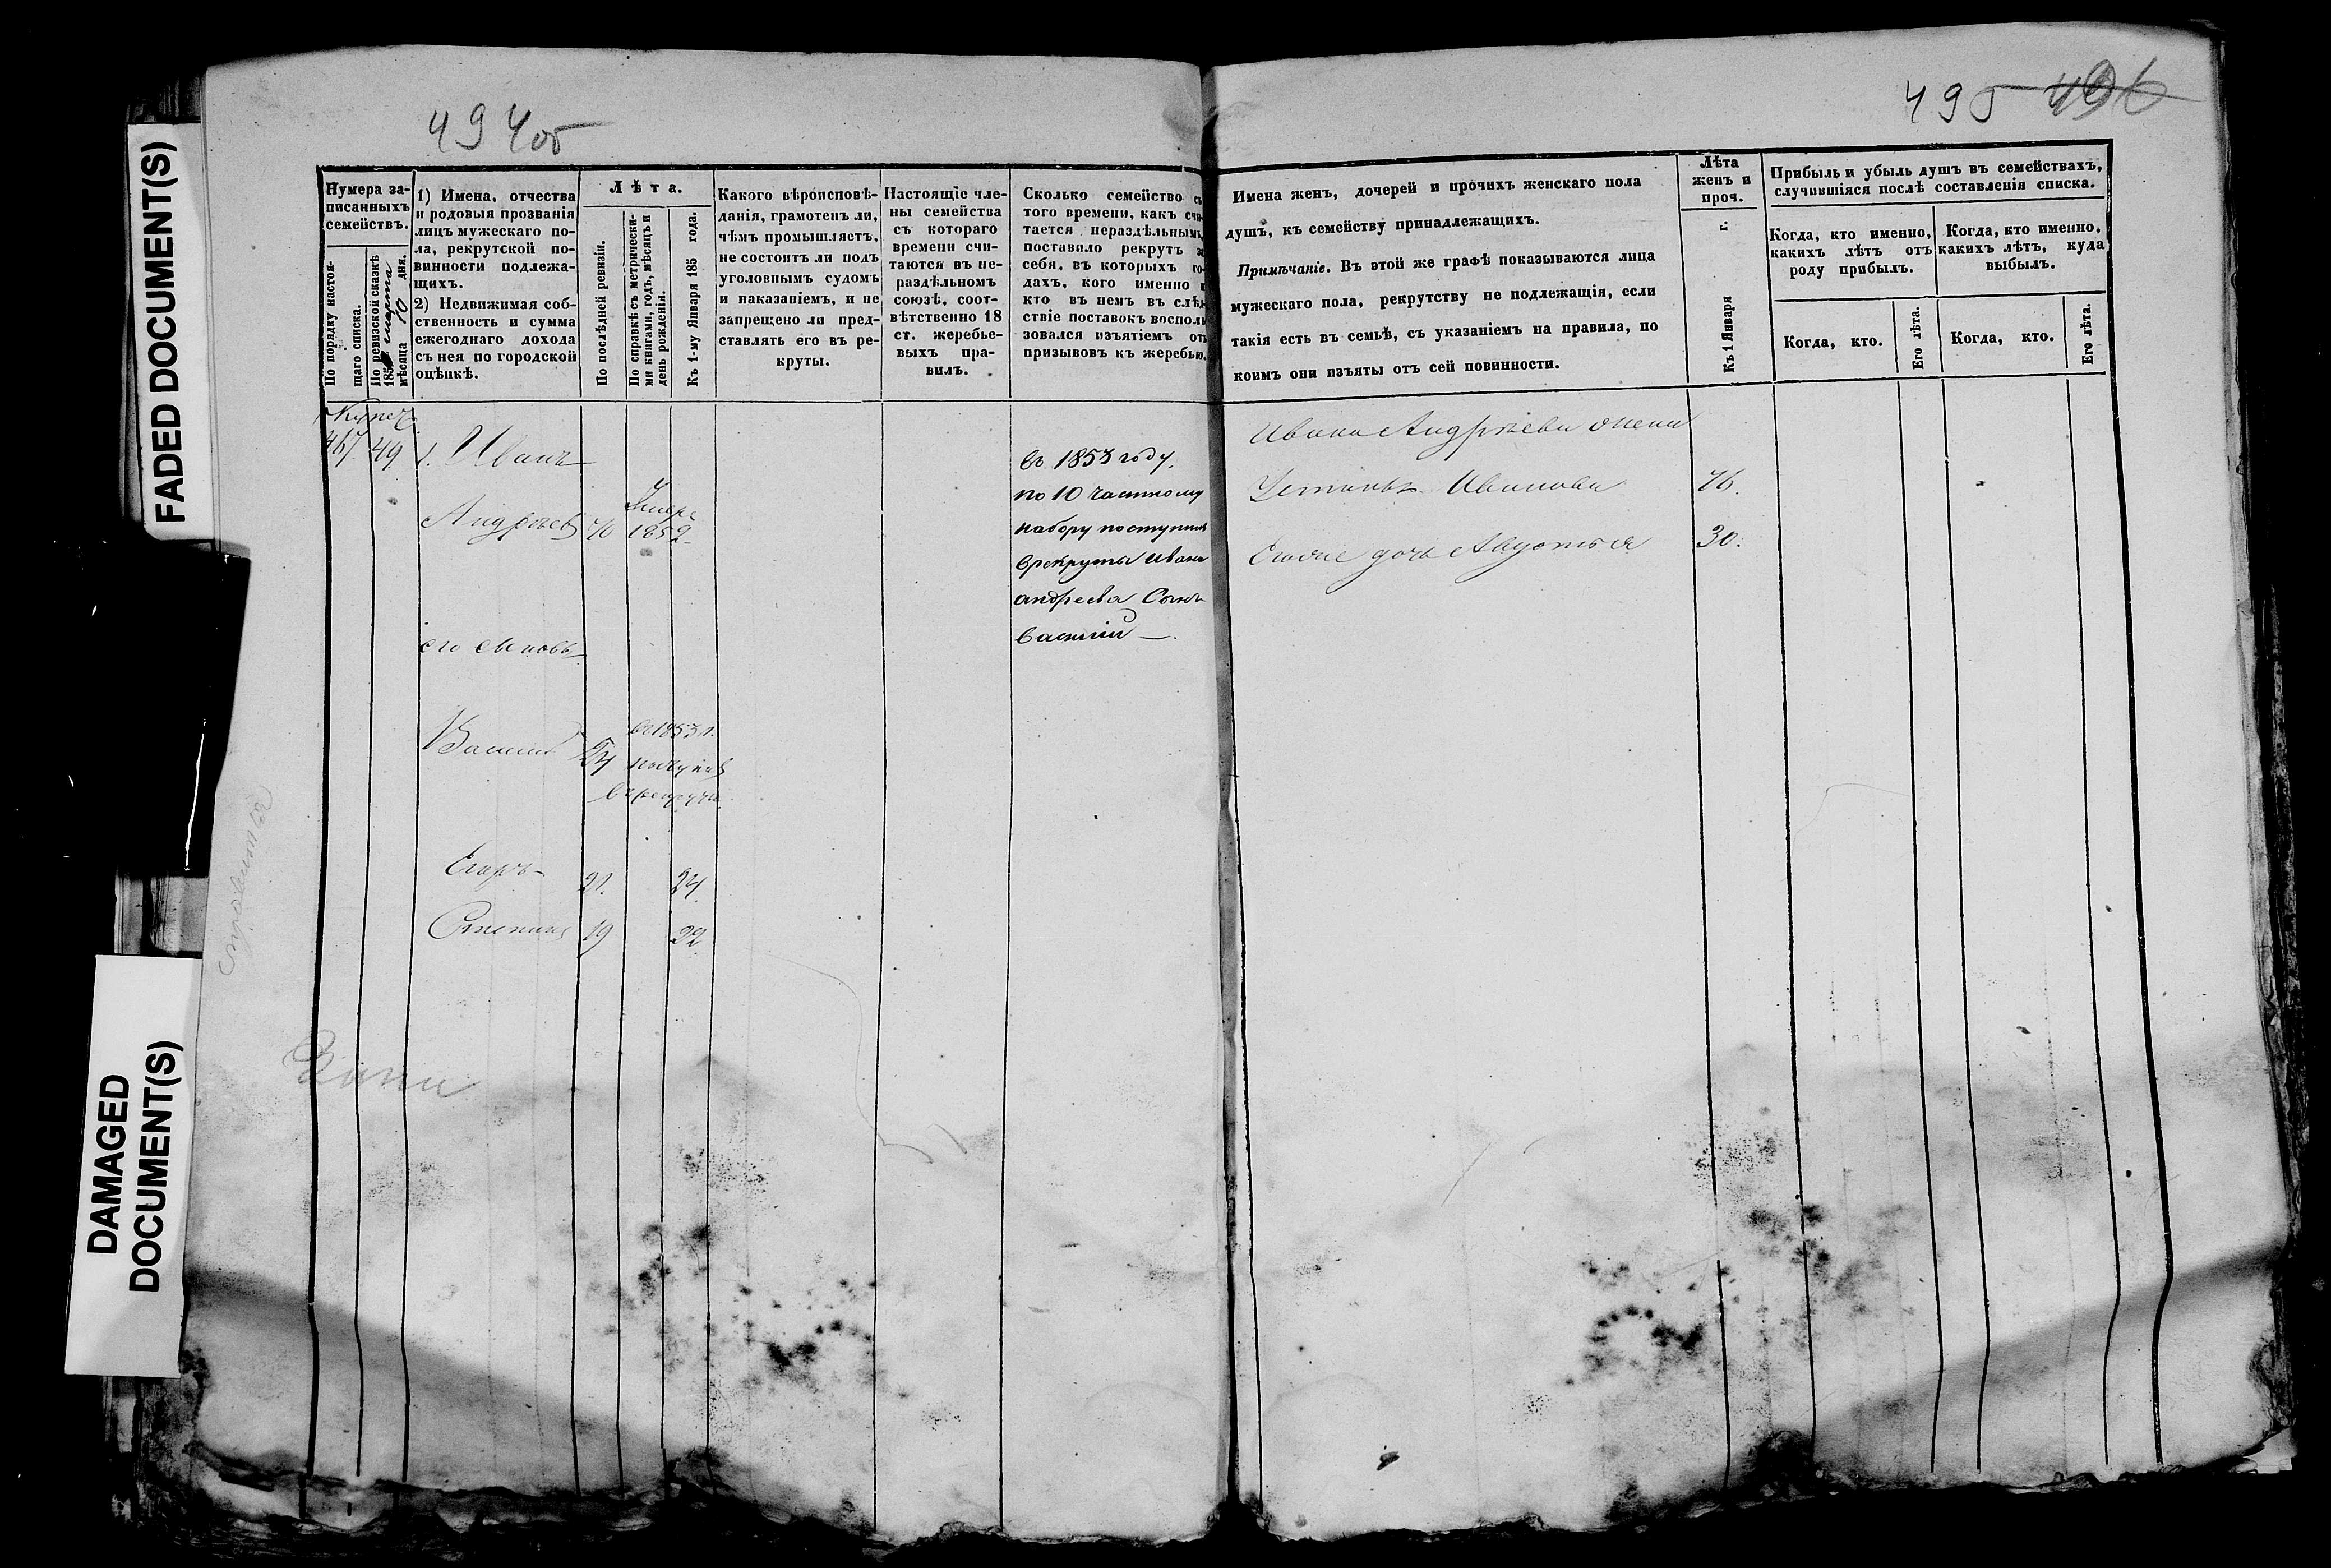 FADED DOCUMENT(S)
DAMAGED
DOCUMENT(S)
494 об
Нумера за-
писанныхъ
семействъ.
По порядку настоя-
щаго списка.
По ревизской сказкѣ
185 марта
мѣсяца 10 дня.
1) Имена, отчества
и родовыя прозванія
лицъ мужескаго по-
ла, рекрутской по-
винности подлежа-
щихъ.
2) Недвижимая соб-
ственность и сумма
ежегоднаго дохода
съ нея по городской
оцѣнкѣ.
Лѣта.
По послѣдней ревизіи.
По справкѣ съ метрически-
ми книгами, годъ, мѣсяцъ и
день рожденія.
Къ 1-му Января 185 года.
Какого вѣроисповѣ-
данія, грамотенъ ли,
чѣмъ промышляетъ,
не состоитъ ли подъ
уголовнымъ судомъ
и наказаніемъ, и не
запрещено ли пред-
ставлять его въ ре-
круты.
Настоящіе чле-
ны семейства
съ котораго
времени счи-
таются въ не-
раздѣльномъ
союзѣ, соот-
вѣтственно 18
ст. жеребье-
выхъ пра-
вилъ.
Сколько семейство съ
того времени, какъ счи-
тается нераздѣльнымъ,
поставило рекрутъ за
себя, въ которыхъ го-
дахъ, кого именно и
кто въ немъ въ слѣд-
ствіе поставокъ восполь
зовался изъятіемъ отъ
призывовъ къ жеребью.
Купеч
467. 49. 1. Иванъ
Андреевъ 70 Умеръ
1852
его сыновья
Василій 24 въ 1853 г.
поступилъ
в рекруты
Егоръ 21. 24.
Степанъ 19 22
въ 1853 году.
по 10 частному
набору поступилъ
в рекруты Ивана
андреева Сынъ
василій —.
495 496
Имена женъ, дочерей и прочихъ женскаго пола
душъ, къ семейству принадлежащихъ.
Примѣчаніе. Въ этой же графѣ показываются лица
мужескаго пола, рекрутству не подлежащія, если
такія есть въ семьѣ, съ указаніемъ на правила, по
коимъ они изъяты отъ сей повинности.
Лѣта
женъ и
проч.
Къ 1 Января г.
Прибыль и убыль душъ въ семействахъ,
случившіяся послѣ составленія списка.
Когда, кто именно,
какихъ лѣтъ отъ
роду прибылъ.
Когда, кто именно,
какихъ лѣтъ, куда
выбылъ.
Когда, кто.
Его лѣта.
Когда, кто.
Его лѣта.
Ивана Андрѣева жена
Иванова 76.
дочь Авдотья 30.